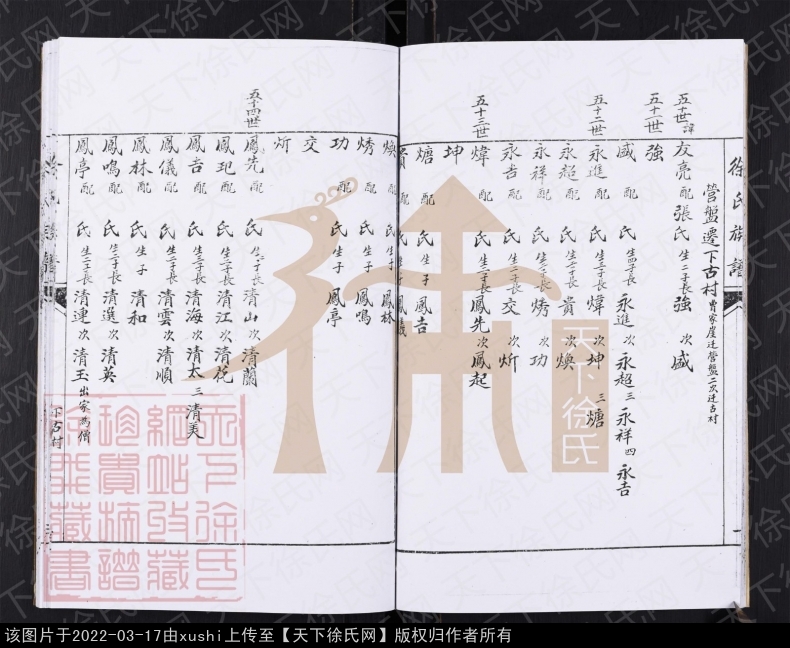 徐氏族譜
營盤遷下古村 曹家崖迁營盤二次迁古村
五十世 諱友亮 配張氏 生二子長強 次盛
五十一世 強
盛 配 氏 生四子長永進 次永超 三永祥 四永吉
五十二世 永進 配 氏 生三子長煒 次坤 三煻
永超 配 氏 生二子長貴 次煥
永祥 配 氏 生二子長焅 次功
永吉 配 氏 生二子長交 次炘
五十三世 煒 配 氏 生二子長鳳先 次鳳起
坤
煻 配 氏 生子 鳳吉
貴 配 氏 鳳儀
煥 配 氏 鳳林
焅 配 氏 生子 鳳鳴
功 配 氏 生子 鳳亭
交
炘
五十四世 鳳先 配 氏 生二子長清山 次清蘭
鳳玘 配 氏 生二子長清江 次清花
鳳吉 配 氏 生三子長清海 次清太 三清美
鳳儀 配 氏 生二子長清雲 次清順
鳳林 配 氏 生子 清和
鳳鳴 配 氏 生二子長清選 次清英
鳳亭 配 氏 生二子長清連 次清玉 出家為僧
下古村
天下徐氏
天下徐氏网
该图片于2022-03-17由xushi上传至【天下徐氏网】版权归作者所有